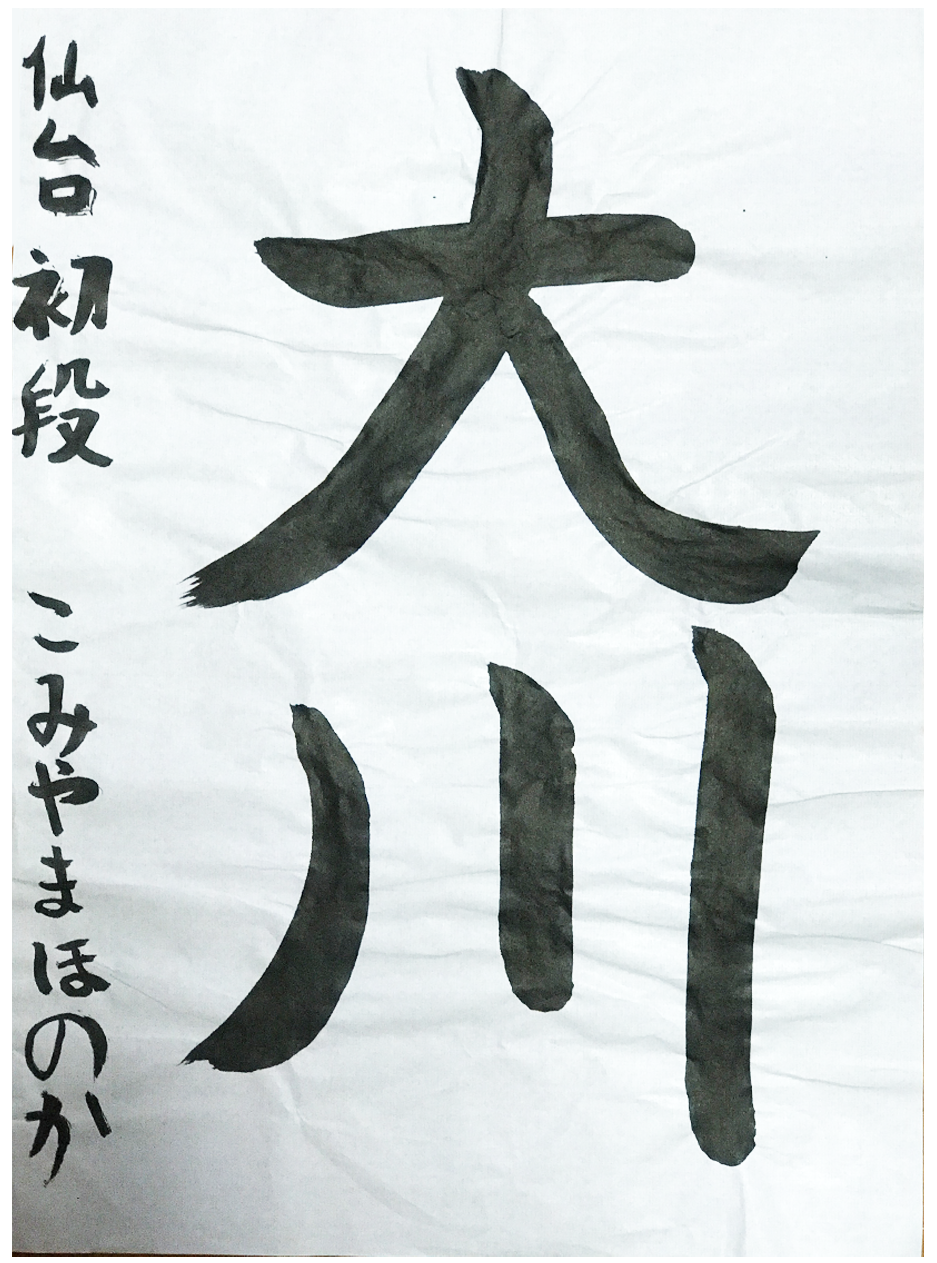 大川
仙台 初段 こみやまほのか